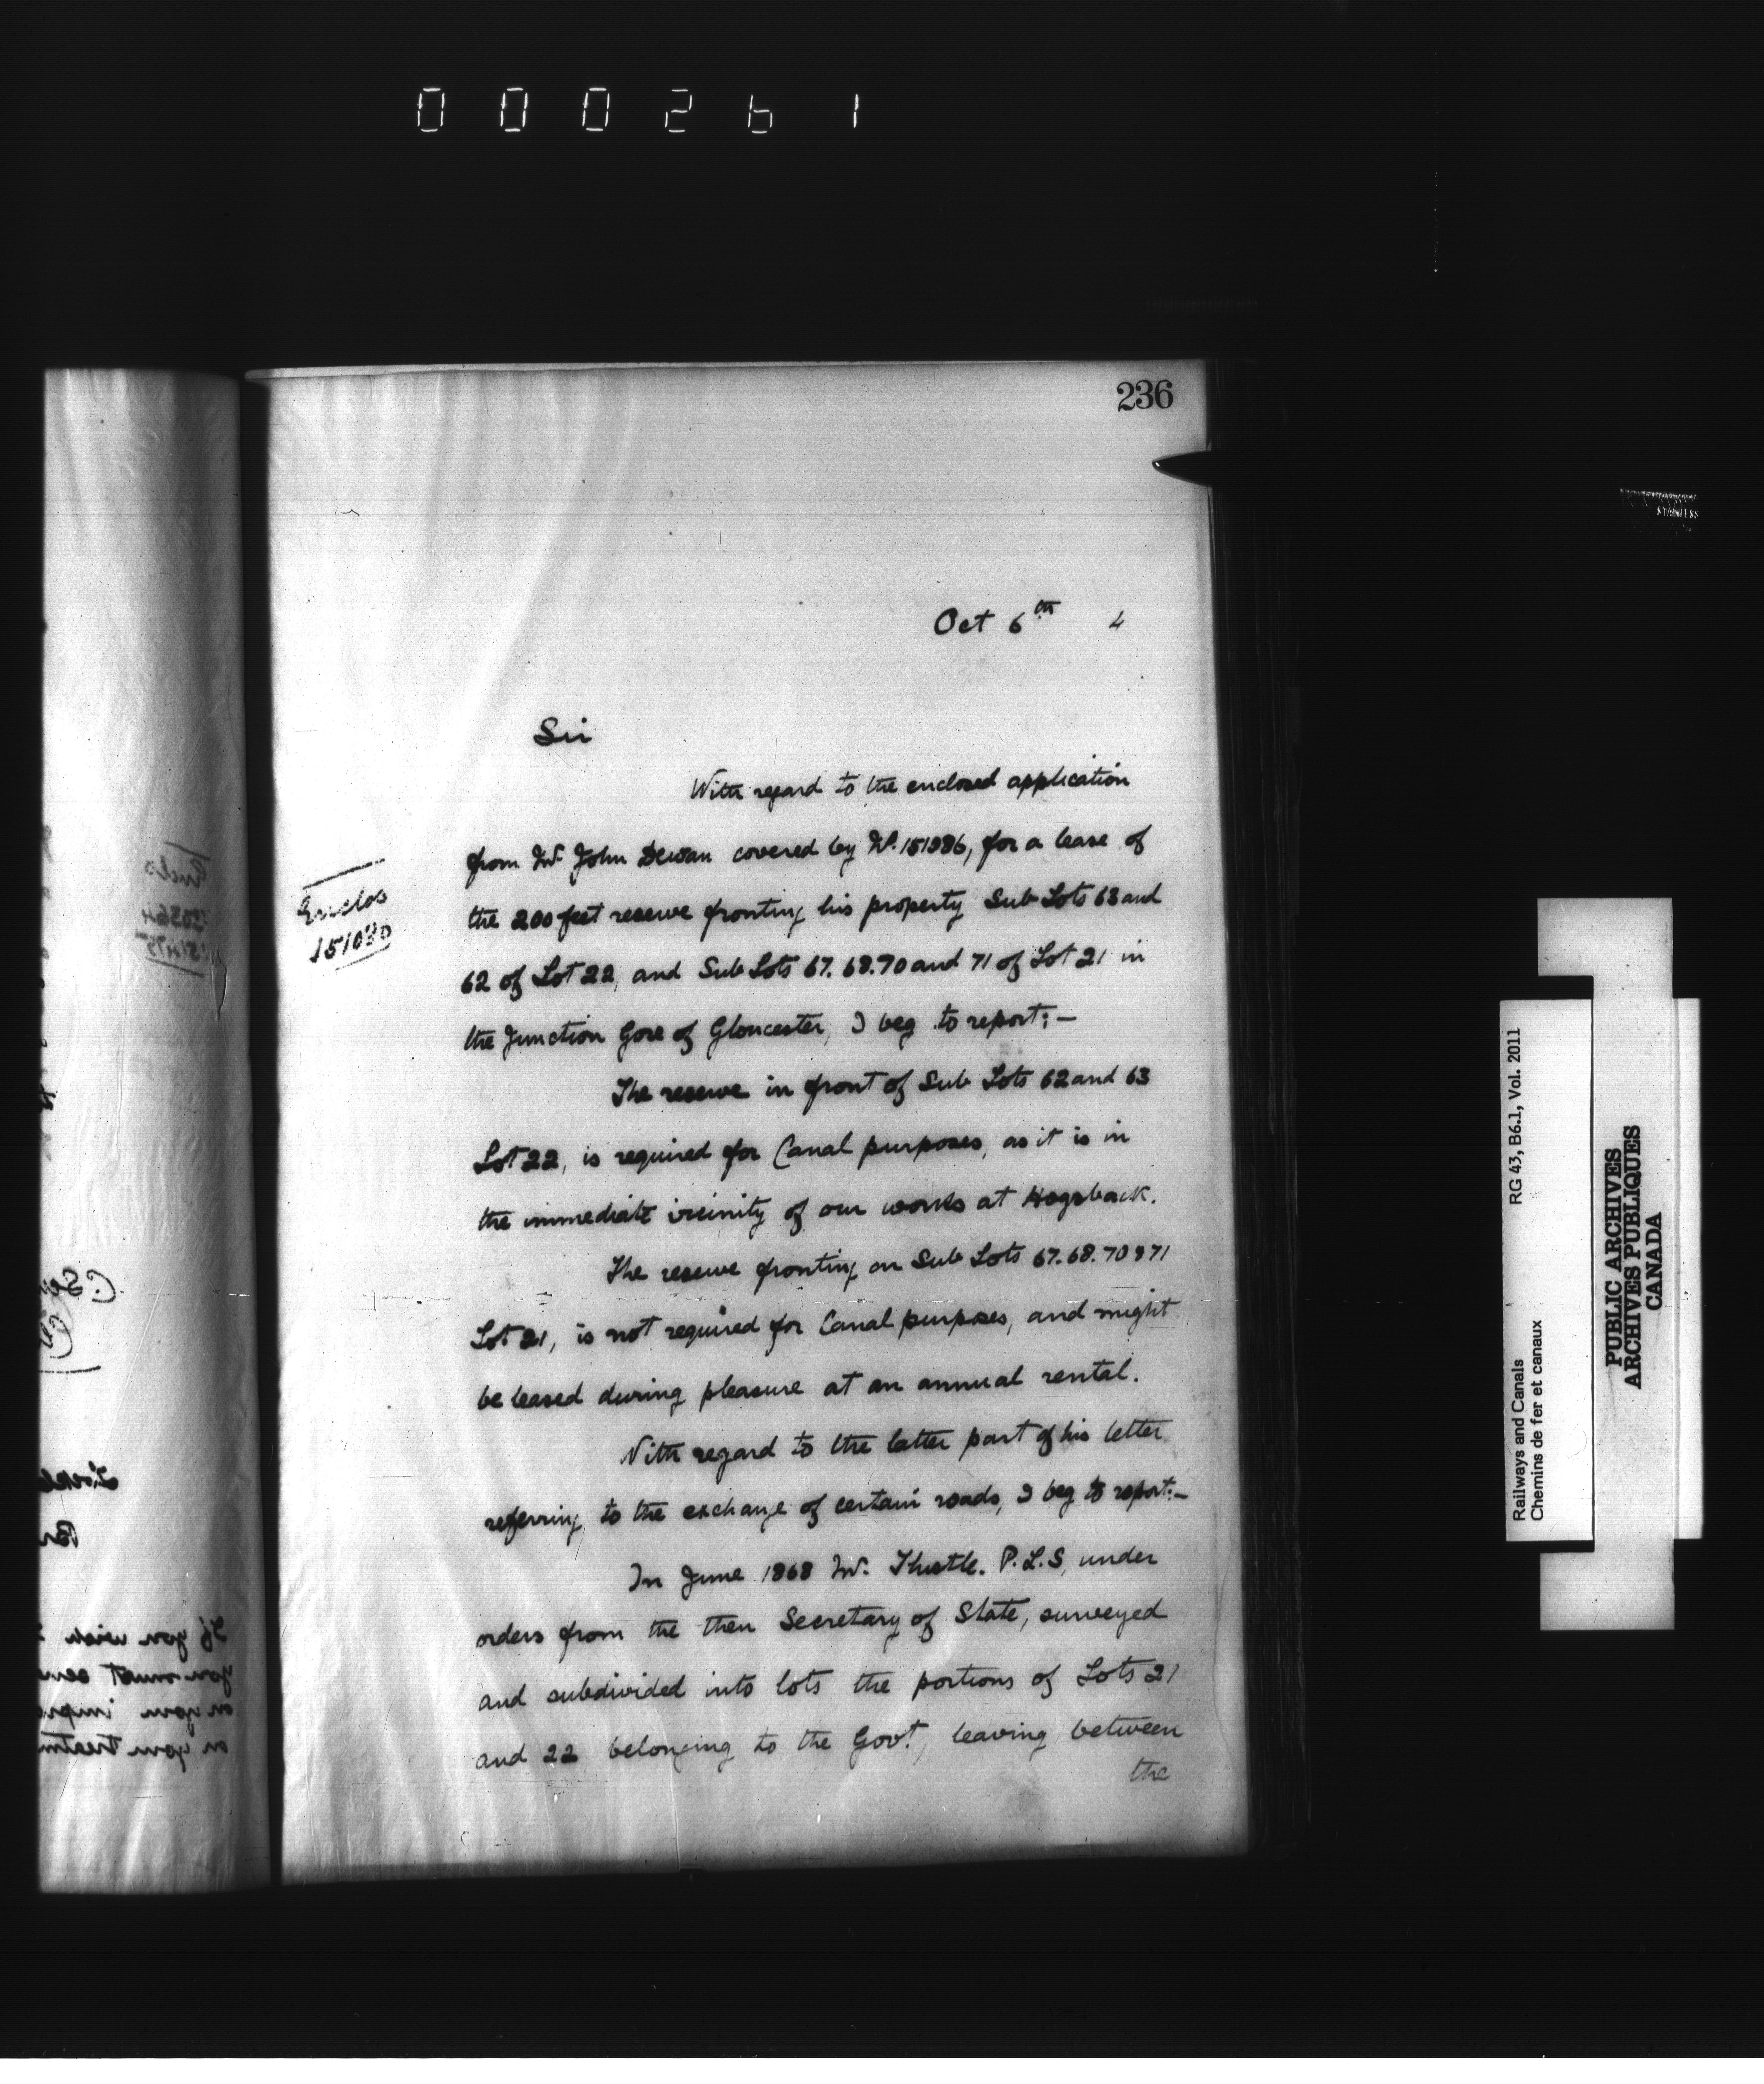 000261
236
Oct 6th 4
Sir
With regard to the enclosed application
from Mr John Dewan covered by No. 151986, for a lease of
the 200 feet reserve fronting his property Sub Lots 63 and
62 of Lot 22, and Sub Lots 67. 68. 70 and 71 of Lot 21 in
the Junction Gore of Gloucester, I beg to report:—
Enclos
The reserve in front of Sub Lots 62 and 63
Lot 22, is required for Canal purposes, as it is in
the immediate vicinity of our works at Hogsback.
The reserve fronting on Sub Lots 67. 68. 70 & 71
Lot 21, is not required for Canal purposes, and might
be leased during pleasure at an annual rental.
With regard to the latter part of his letter
referring to the exchange of certain roads, I beg to report:—
In June 1868 Mr. Thistle. P.L.S, under
orders from the then Secretary of State, surveyed
and subdivided into lots the portions of Lots 21
and 22 belonging to the Govt, leaving between
the
Railways and Canals RG 43, B6.1, Vol. 2011
Chemins de fer et canaux
PUBLIC ARCHIVES
ARCHIVES PUBLIQUES
CANADA